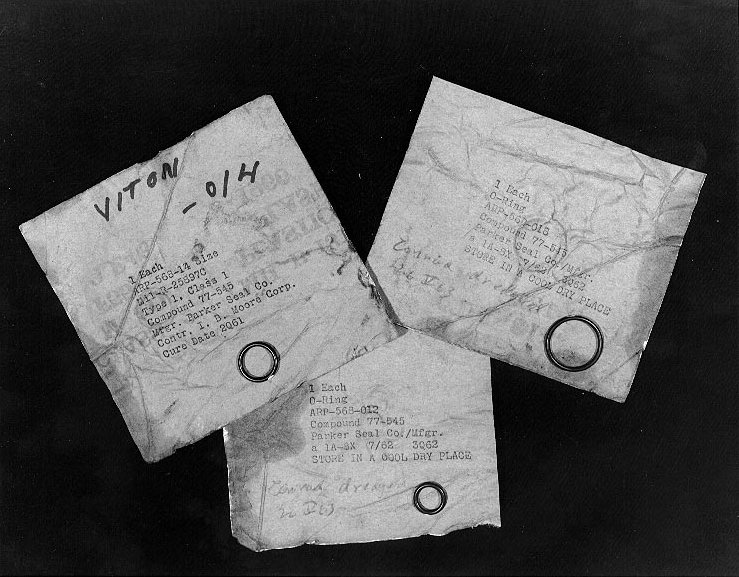 VITON
-014
1 Each
ARP-568-14 Size
Mil-R-25897C
Type 1, Class 1
Compound 77-545
Mfgr. Parker Seal Co.
Contr. I. B. Moore Corp.
Cure Date 2Q61
1 Each
O-Ring
ARP-568-018
Compound 77-545
Parker Seal Co./Mfr.
a 1A-5X 7/62 3Q62
STORE IN A COOL DRY PLACE
1 Each
O-Ring
ARP-568-012
Compound 77-545
Parker Seal Co./Mfgr.
a 1A-5X 7/62 3Q62
STORE IN A COOL DRY PLACE